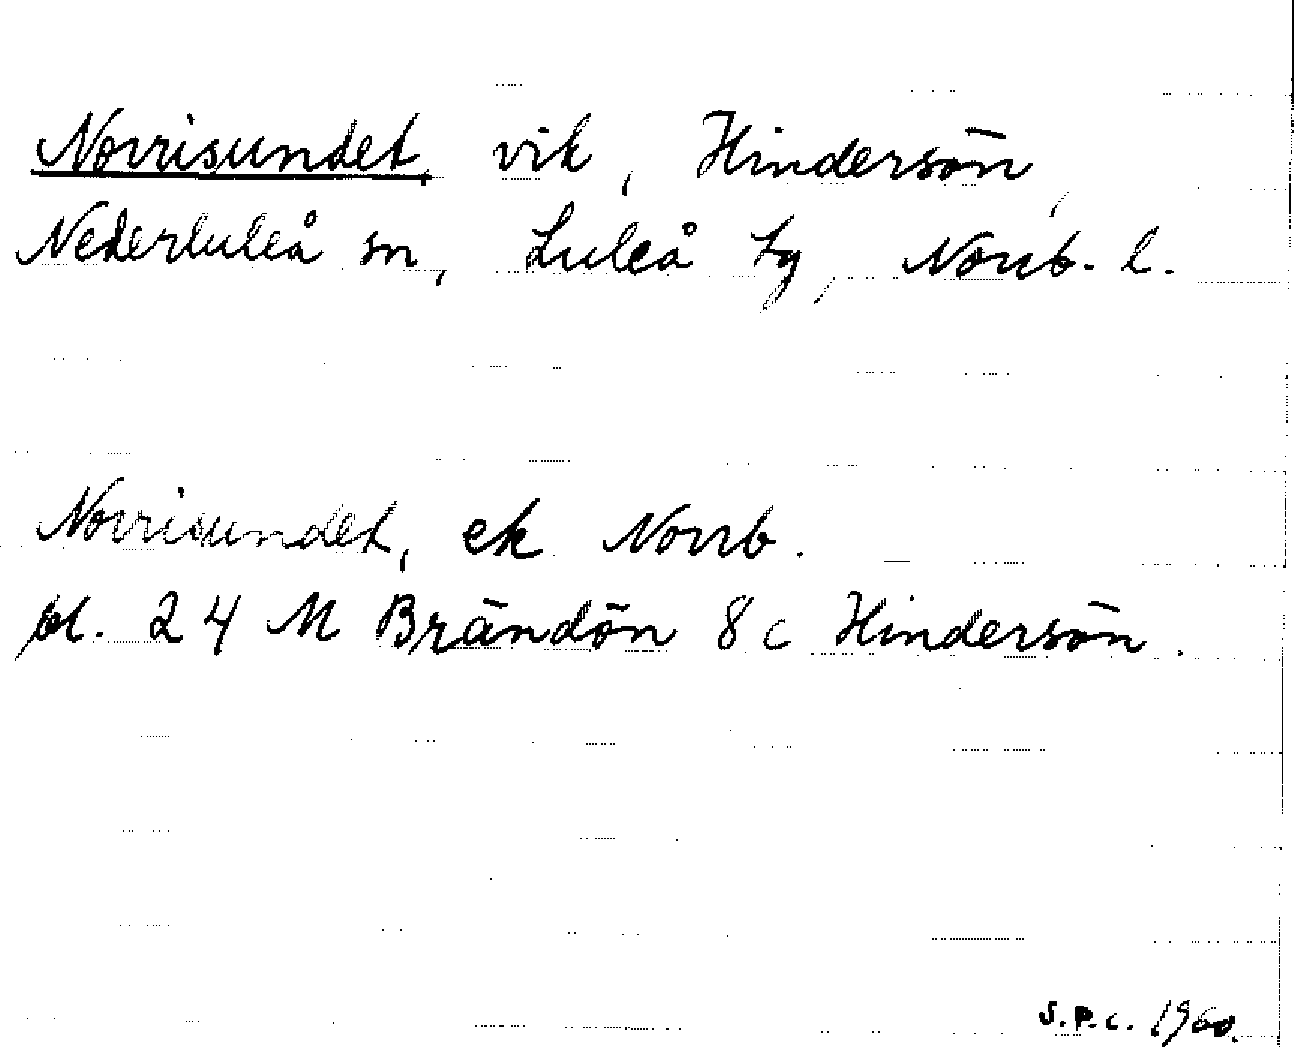 Norrisundet, vik, Hindersön,
Nederluleå sn, Luleå tg, Norrb. l.
Norrisundet, ek Norrb.
bl. 24 M Brändön 8 c Hindersön.
S.P.C. 1960.